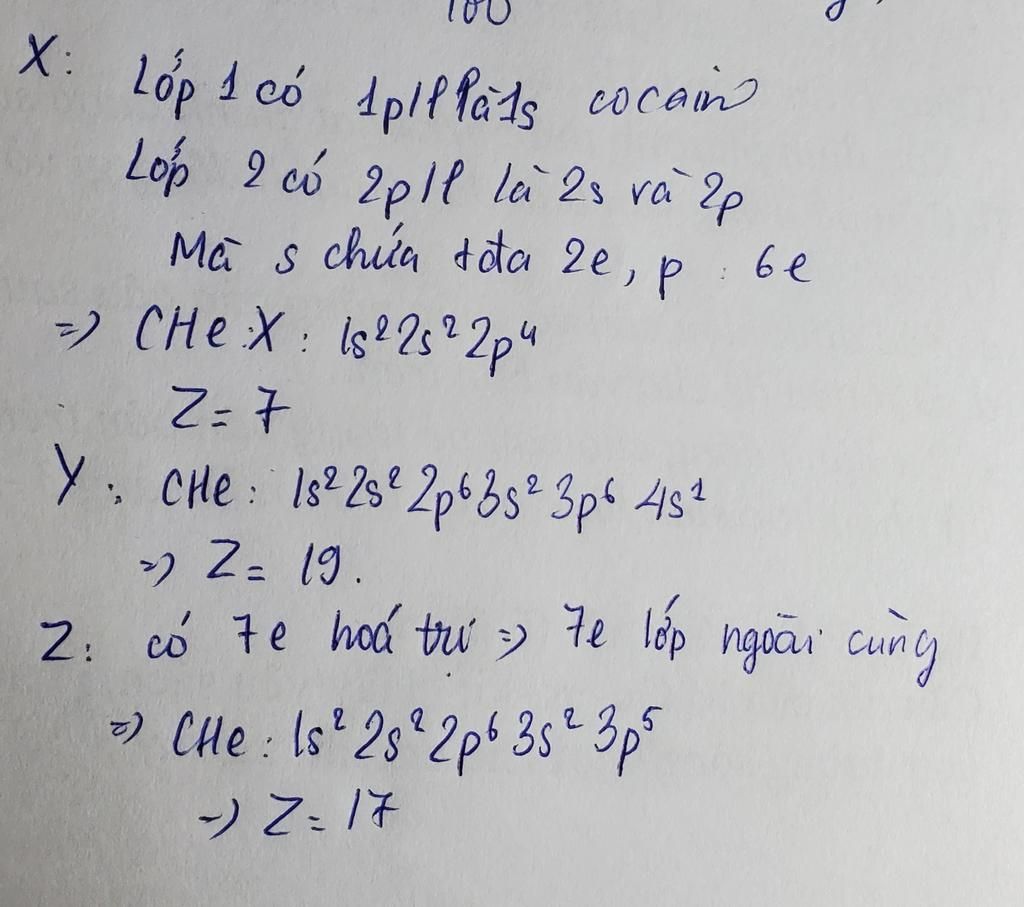 100
X: Lớp 1 có 1pll là 1s cocain
Lớp 2 có 2pll là 2s và 2p
Mà s chứa tđta 2e, p : 6e
=) CHe X: 1s² 2s² 2p⁴
Z = 7
Y: CHe: 1s² 2s² 2p⁶ 3s² 3p⁶ 4s¹
=) Z = 19.
Z: có 7e hoá trị => 7e lớp ngoài cùng
=) CHe: 1s² 2s² 2p⁶ 3s² 3p⁵
-) Z = 17